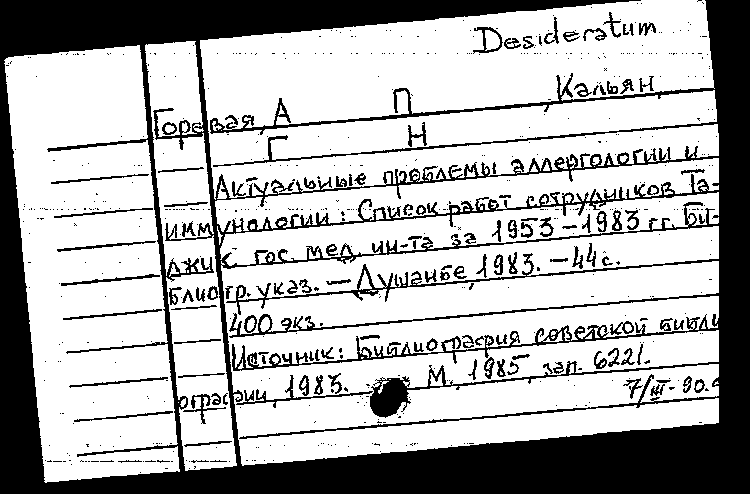 Desideratum
Горевая, А П , Кальян,
Г Н
Актуальные проблемы аллергологии и
иммунологии: Список работ сотрудников Та-
джик гос. мед. ин-та за 1953-1983 гг. Би-
блиогр. указ. — Душанбе, 1983. — 44 с.
400 экз.
Источник: Библиография советской библи
ографии, 1983. М., 1985, зап. 6221.
7/III-90.